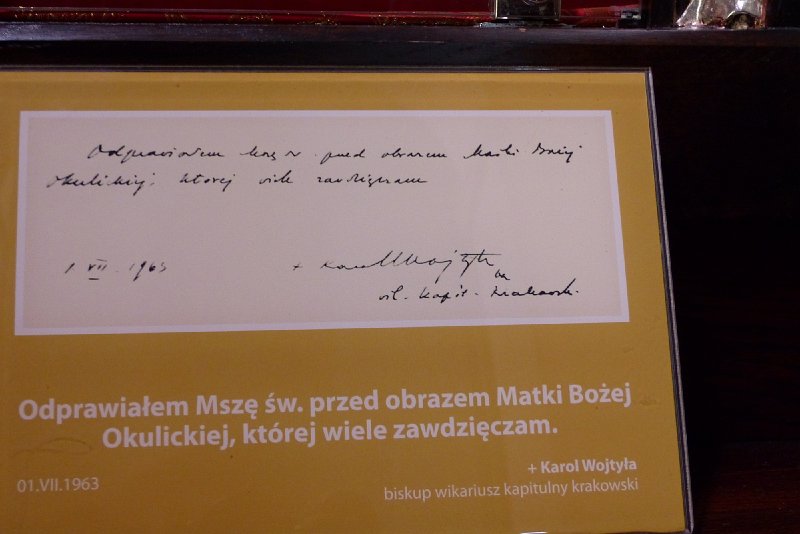 Odprawiałem Mszę św. przed obrazem Matki Bożej
Okulickiej, której wiele zawdzięczam
1 VII. 1963
+ Karol Wojtyła
wik. kapit. krakowski.
Odprawiałem Mszę św. przed obrazem Matki Bożej
Okulickiej, której wiele zawdzięczam.
+ Karol Wojtyła
01.VII.1963
biskup wikariusz kapitulny krakowski